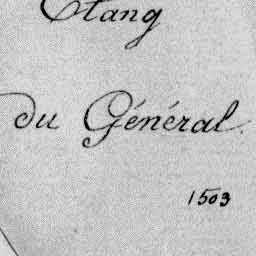 Etang
du Général.
1503